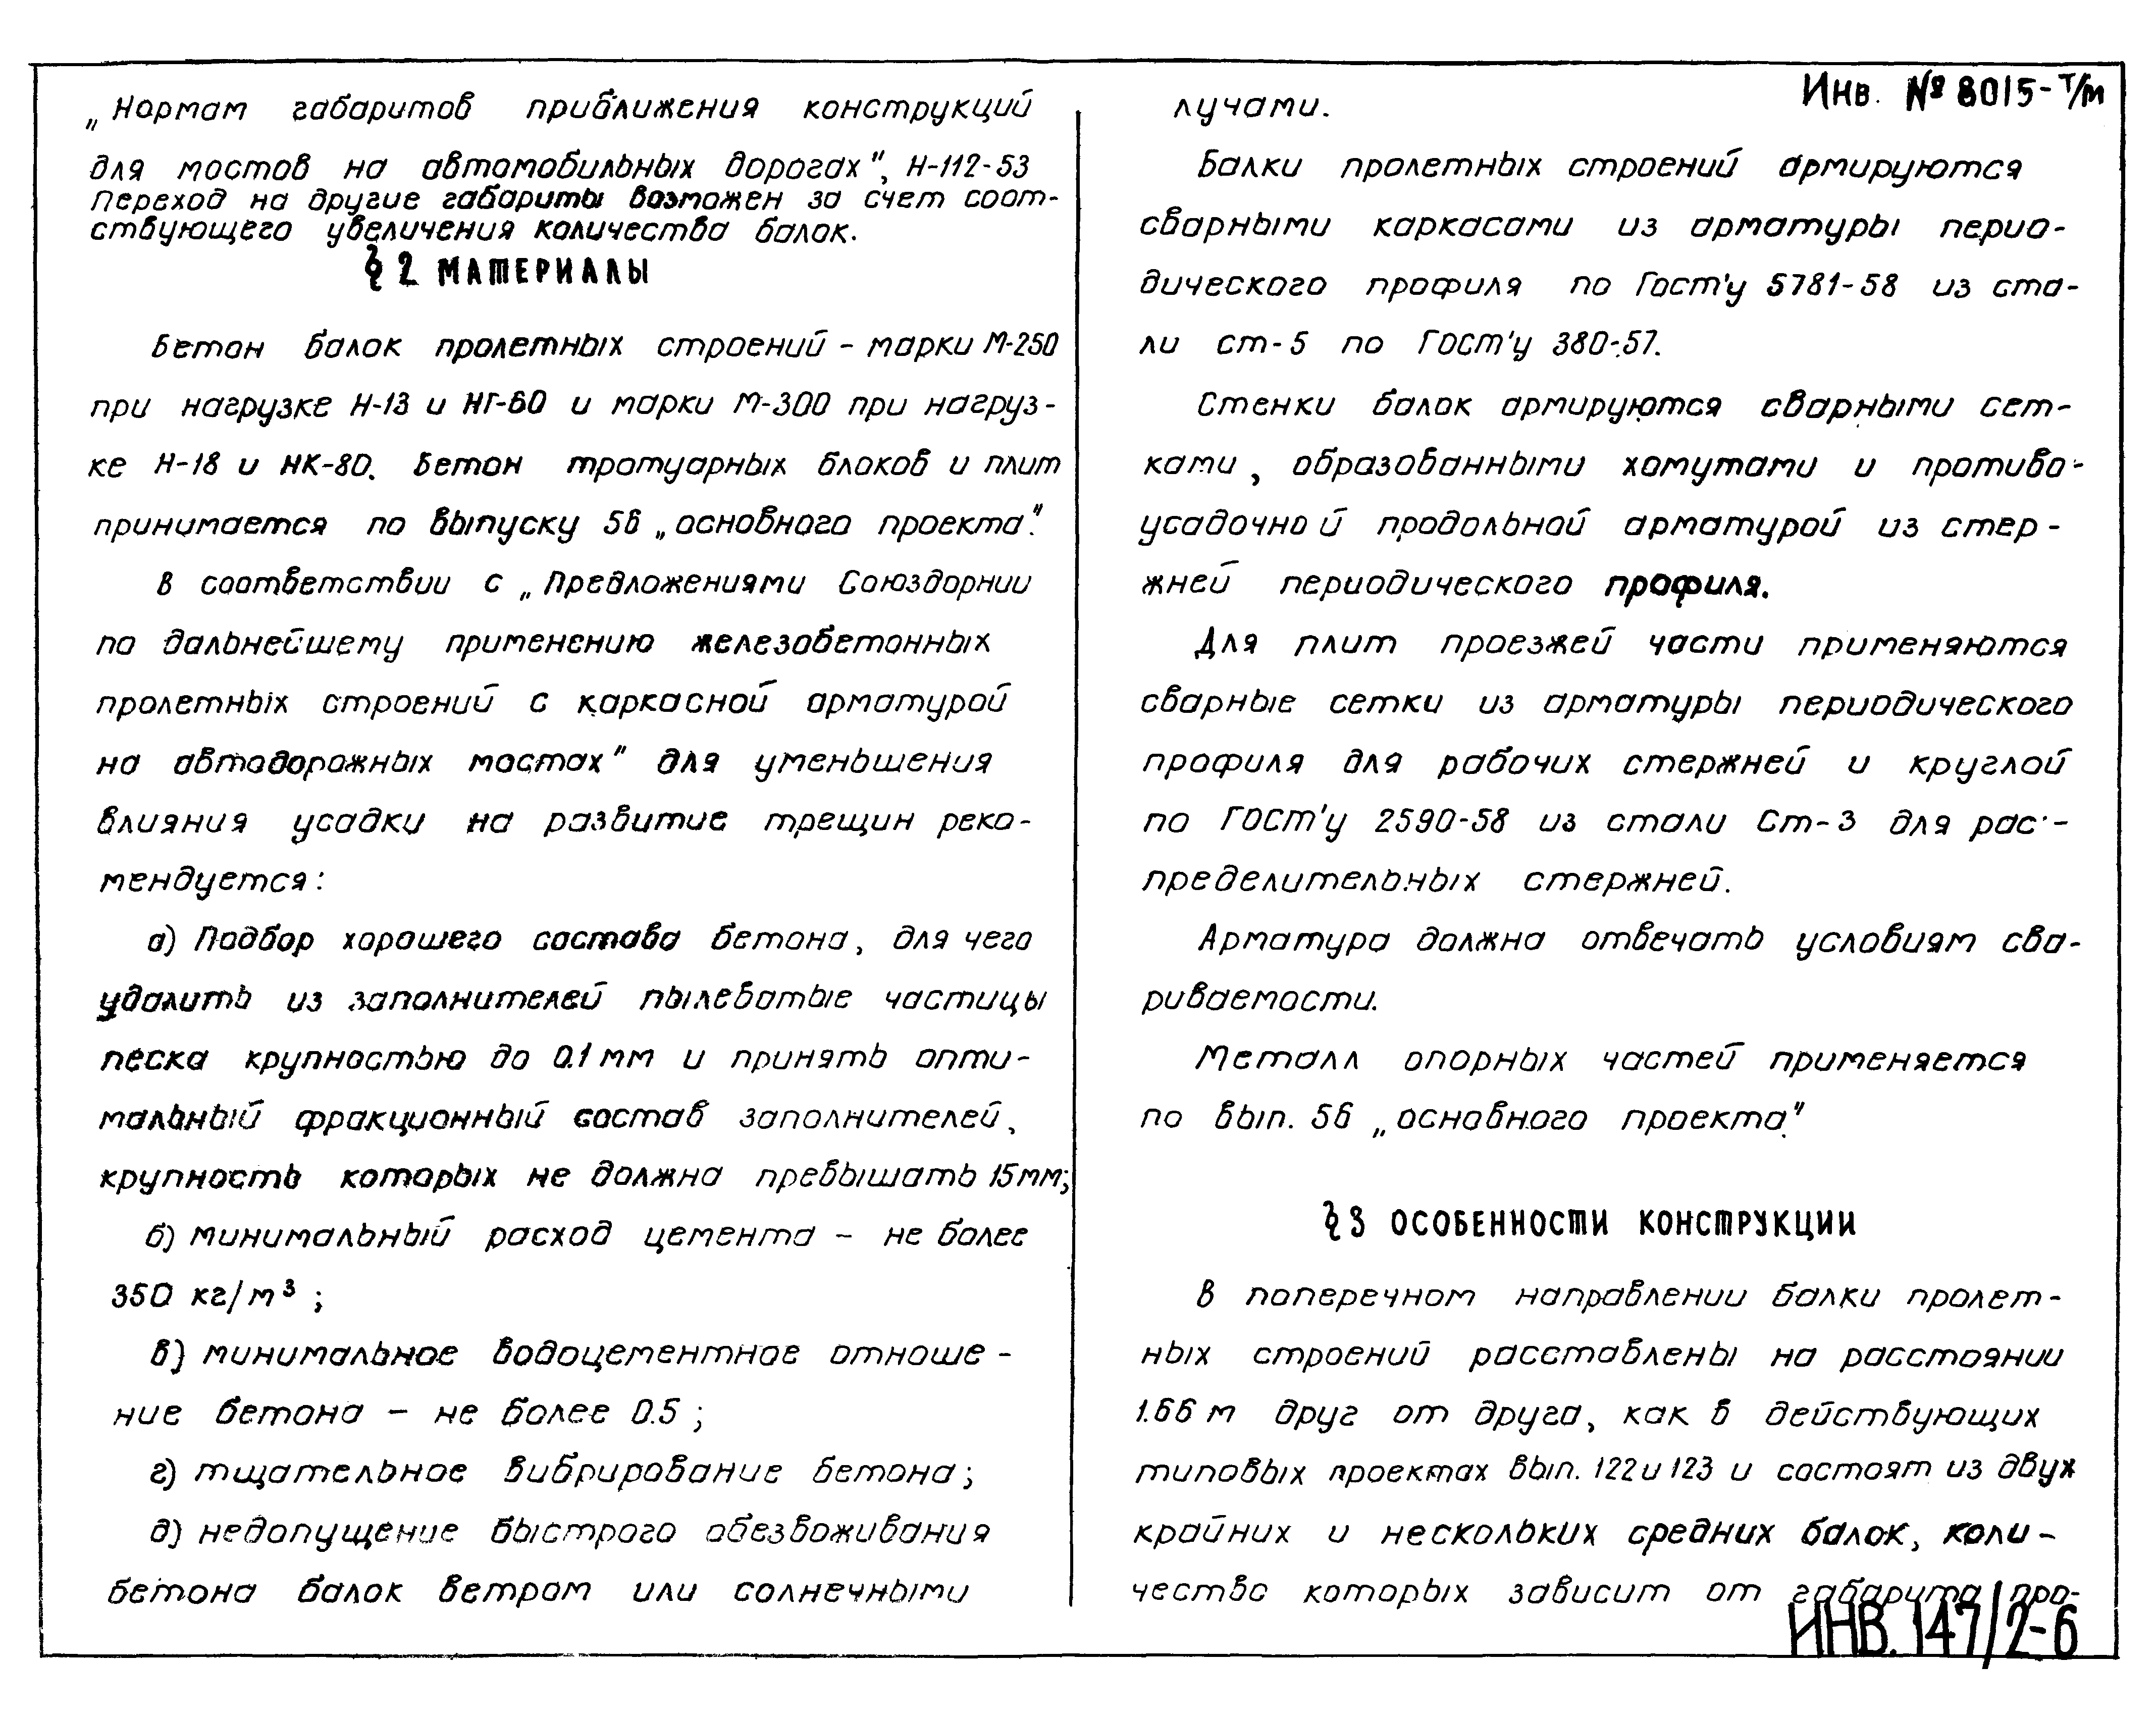 Инв. № 8015-т/м
„Нормам габаритов приближения конструкций
для мостов на автомобильных дорогах", Н-112-53
Переход на другие габариты возможен за счет соот-
ствующего увеличения количества балок.
§ 2 МАТЕРИАЛЫ
Бетон балок пролетных строений - марки М-250
при нагрузке Н-13 и НГ-60 и марки М-300 при нагруз-
ке Н-18 и НК-80. Бетон тротуарных блоков и плит
принимается по выпуску 56 „основного проекта".
В соответствии с „Предложениями Союздорнии
по дальнейшему применению железобетонных
пролетных строений с каркасной арматурой
на автодорожных мостах" для уменьшения
влияния усадки на развитие трещин реко-
мендуется:
а) Подбор хорошего состава бетона, для чего
удалить из заполнителей пылеватые частицы
песка крупностью до 0.1 мм и принять опти-
мальный фракционный состав заполнителей,
крупность которых не должна превышать 15мм;
б) минимальный расход цемента - не более
350 кг/м³ ;
в) минимальное водоцементное отноше-
ние бетона - не более 0.5 ;
г) тщательное вибрирование бетона;
д) недопущение быстрого обезвоживания
бетона балок ветром или солнечными
лучами.
Балки пролетных строений армируются
сварными каркасами из арматуры перио-
дического профиля по Гост'у 5781-58 из ста-
ли ст-5 по ГОСТ'у 380-57.
Стенки балок армируются сварными сет-
ками, образованными хомутами и противо-
усадочной продольной арматурой из стер-
жней периодического профиля.
Для плит проезжей части применяются
сварные сетки из арматуры периодического
профиля для рабочих стержней и круглой
по ГОСТ'у 2590-58 из стали Ст-3 для рас-
пределительных стержней.
Арматура должна отвечать условиям сва-
риваемости.
Металл опорных частей применяется
по вып. 56 „основного проекта."
§ 3 ОСОБЕННОСТИ КОНСТРУКЦИИ
В поперечном направлении балки пролет-
ных строений расставлены на расстоянии
1.66 м друг от друга, как в действующих
типовых проектах вып. 122 и 123 и состоят из двух
крайних и нескольких средних балок, коли-
чество которых зависит от габарита про-
ИНВ. 147/2-6